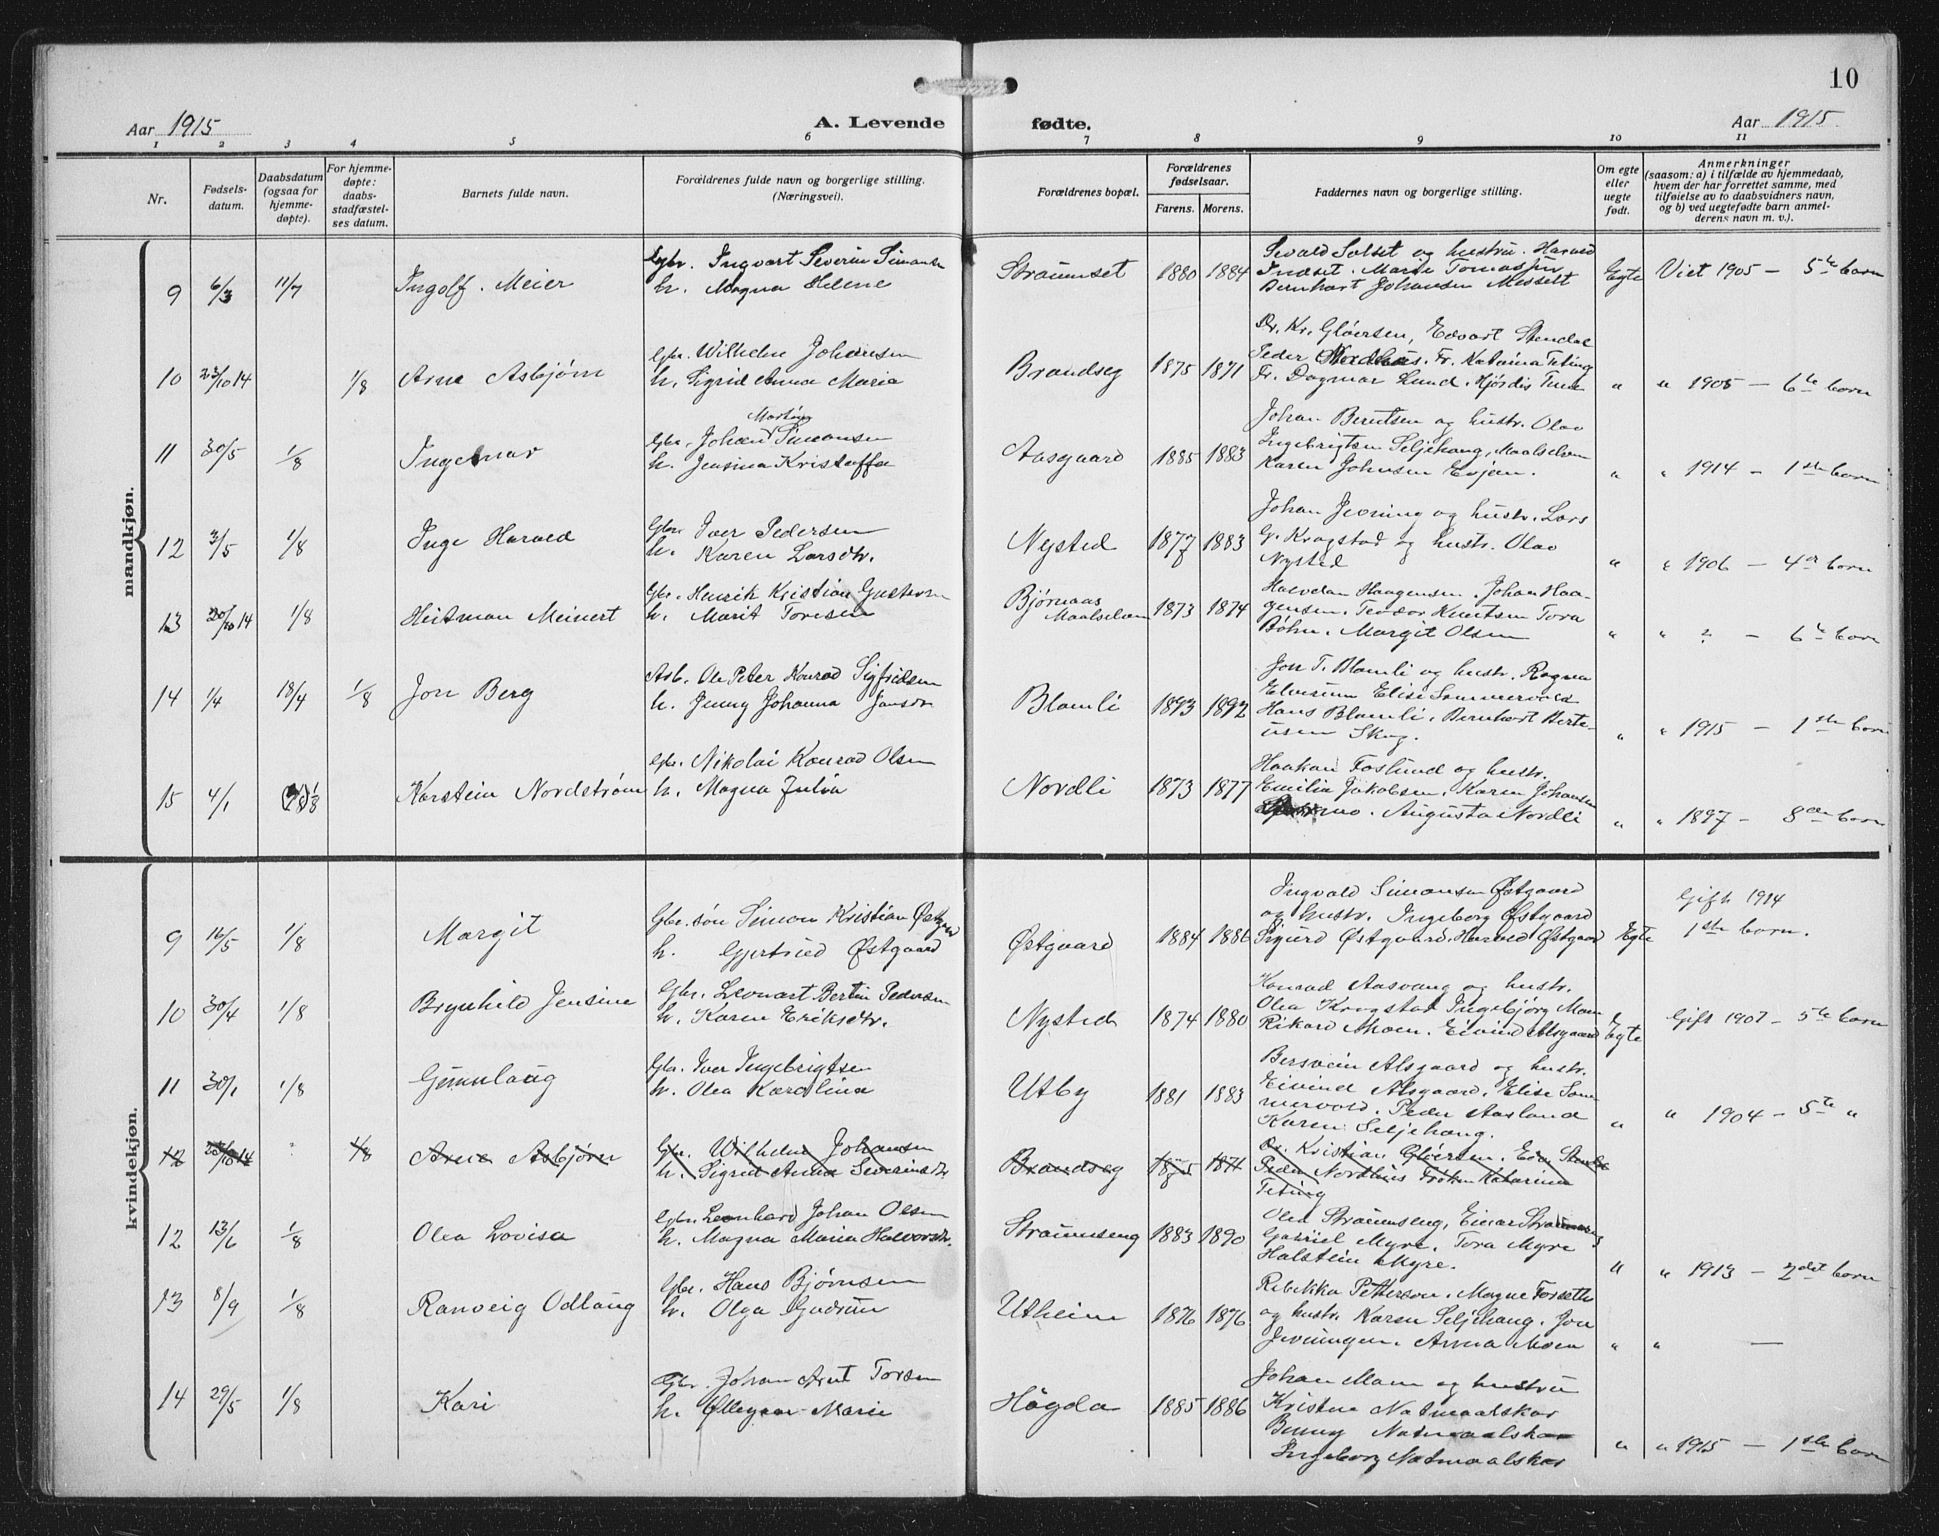 10
Aar 1915 A. Levende fødte. Aar 1915.
1 2 3 4 5 6 7 8 9 10 11
Nr.
Fødsels-
datum.
Daabsdatum
(ogsaa for
hjemme-
døpte).
For hjemme-
døpte:
daabs-
stadfæstel-
ses datum.
Barnets fulde navn.
Forældrenes fulde navn og borgerlige stilling.
(Næringsvei).
Forældrenes bopæl.
Forældrenes
fødselsaar.
Farens. Morens.
Faddernes navn og borgerlige stilling.
Om egte
eller
uegte
født.
Anmerkninger
(saasom: a) i tilfælde av hjemmedaab,
hvem der har forrettet samme, med
tilføielse av to daabsvidners navn,
og b) ved uegtefødte barn anmel-
derens navn m. v.).
mandkjøn.
9 6/3 11/7 Ingolf. Meier
Gbr. Ingvart Severin Simonsen
h. Magna Helene
Straumset 1880 1884
Sevald Solset og hustru. Harald
Indset. Marie Tomassen
Bernhart Johansen Messelt
Egte Viet 1905 – 5te barn
10 23/10 14 1/8 Arne Asbjørn
Gbr. Wilhelm Johansen
h. Sigrid Anna Maria
Brandseg 1875 1871
Dr. Kr. Gløersen, Edvart Stendal
Peder Nordhus. Fr. Katarina Teting
Fr. Dagmar Lund. Hjørdis
" " 1905 – 6te barn
11 30/5 1/8 Ingemar
Morten
Gbr. Johan Simonsen
h. Jensina Kristoffa
Aasgaard 1885 1883
Johan Berntsen og hustr. Olav
Ingebrigtsen Seljehaug, Maalselven
Karen Johnsen Evjen.
" " 1914 – 1ste barn
12 3/5 1/8 Inge Harald
Gbr. Iver Pedersen
h. Karen Larsdtr.
Nysted 1877 1883
Johan Jevning og hustr. Lars
G. Krogstad og hustr. Olav
Nysted
" " 1906 – 4de barn
13 20/10 14 1/8 Heitman Meinert
Gbr. Henrik Kristian Gustavsen
h. Marit Toresen
Bjørnaas
Maalselven 1873 1874
Halvdan Haagensen. Johan Haa-
gensen. Teodor Knutsen Tora
Bøhn. Margit Olsen
" " ? – 6te barn
14 1/4 18/4 1/8 Jon Berg
Arb. Ole Peter Konrad Sigfridsen
h. Jenny Johanna Jonsdr
Blomli 1893 1892
Jon T. Blomli og hustr. Ragna
Elvrum Elise Sommervold
Hans Blomli. Bernhart Bert-
ensen Skog.
" " 1915 – 1ste barn
15 4/1 1/8 Karstein Nordstrøm
Gbr. Nikolai Konrad Olsen
h. Magna Julia
Nordli 1873 1877
Haakon Foslund og hustr.
Emilia Jakobsen. Karen Johansen
mo. Augusta Nordli
" " 1897 – 8de barn
kvindekjøn.
9 16/5 1/8 Margit
Gbr. søn Simon Kristian Østgaard
h. Gjertrud Østgaard
Østgaard 1884 1886
Ingvald Simonsen Østgaard
og hustr. Ingeborg Østgaard
Sigurd Østgaard. Harald Østgaard
Egte Gift 1914
1ste barn.
10 30/4 1/8 Brynhild Jensine
Gbr. Leonart Bertin Pedersen
h. Karen Eriksdtr.
Nysted 1874 1880
Konrad Aasvang og hustr.
Olea Krogstad Ingebjørg Moen
Rikard Moen. Eivind Alsgaard
Egte Gift 1907 – 5te barn
11 30/1 1/8 Gunnlaug
Gbr. Iver Ingebrigtsen
h. Olea Karolina
Utby 1881 1883
Bersvein Alsgaard og hustr.
Eivind Alsgaard. Elise Som-
mervold. Peder Aasland
Karen Seljehaug.
" " 1904 – 5te "
12 23/10 14 1/8 Arne Asbjørn
Gbr. Wilhelm Johansen
h. Sigrid Anna Severinsdtr.
Brandseg 1875 1871
Dr. Kristian Gløersen. Edv. Stendal
Peder Nordhus Frøken Katarina
Teting
12 13/6 1/8 Olea Lovisa
Gbr. Leonhard Johan Olsen
h. Magna Maria Halvorsdtr.
Straumseng 1883 1890
Olea Straumseng, Einar Straumseng
Gabriel Myre. Tora Myre
Halstein Myre.
" " 1913 – 2det barn
13 8/9 1/8 Ranveig Odlaug
Gbr. Hans Bjørnsen
h. Olga Gudrun
Utheim 1876 1876
Rebekka Petterson. Magne Forseth
og hustr. Karen Seljehaug. Jon
Jevningen. Anna Moen
" " —
14 29/5 1/8 Kari
Gbr. Johan Arnt Torsen
h. Ollegaar Marie
Høgda 1885 1886
Johan Moen og hustru
Kristine Natmaalskar
Benny Natmaalskar
Ingeborg Natmaalskar
" " 1915 – 1ste barn